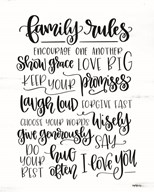 family rules
ENCOURAGE ONE ANOTHER
Show grace LOVE BIG
KEEP YOUR promises
laugh loud FORGIVE FAST
CHOOSE YOUR WORDS Wisely
give generously SAY
DO YOUR BEST hug often I love you